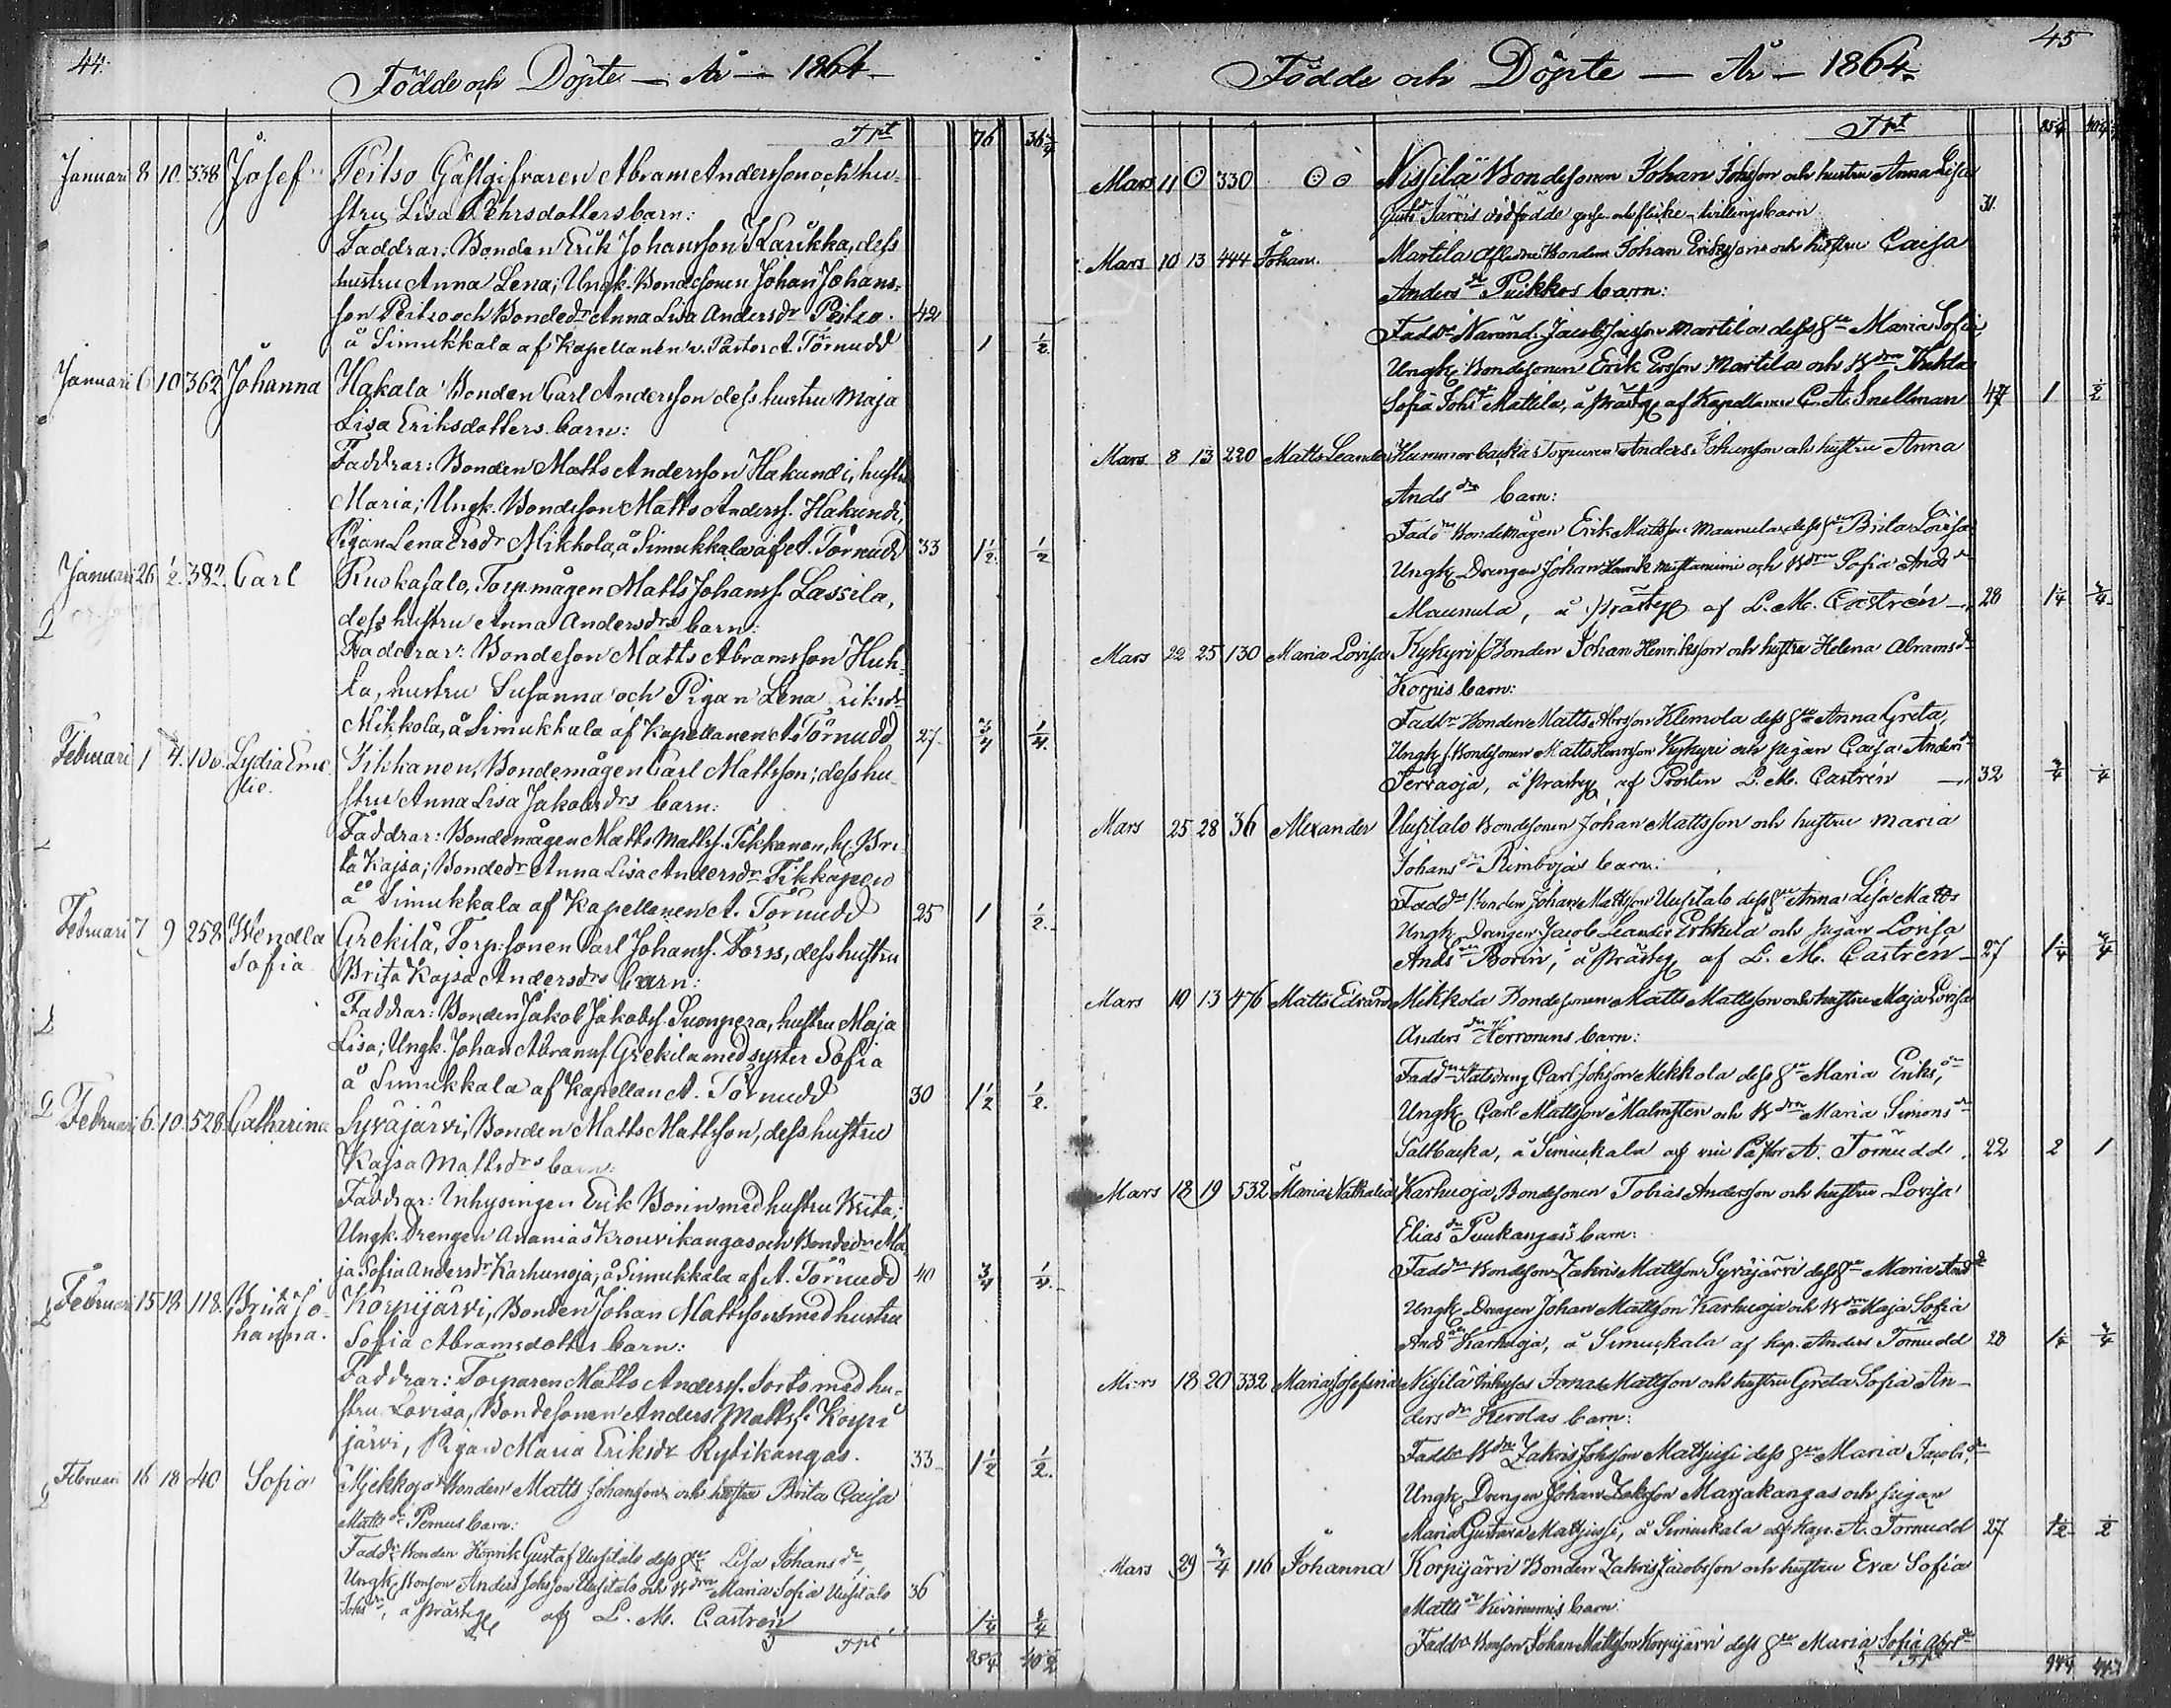 44.
Födde och Döpte — År — 1864
Tr̃t 76 36 3/4
Januari 8 10 338 Josef Peitso Gästgifvaren Abram Andersson och hu-
stru Lisa Pehrsdotters barn:
Faddrar: Bonden Erik Johansson Karikka, dess
hustru Anna Lena; Ungk. Bondesonen Johan Johans-
son Peitso och Bondedr Anna Lisa Andersdr Peitso. 42
å Simukkala af Kapellanen v. Pastor A. Törnudd 1 1/2
Januari 6 10 362 Johanna Hakala Bonden Carl Andersson dess hustru Maja
Lisa Eriksdotters barn:
Faddrar: Bonden Matts Andersson Hakundi, hustru
Maria; Ungk. Bondeson Matts Anderss. Hakundi,
Pigan Lena Ersdr Mikkola, å Simukkala af A. Törnudd 33 1 1/2 1/2
Januari 26 1/2 382 Carl Ruokasalo, Torp.mågen Matts Johanss. Lassila,
dess hustru Anna Andersdrs barn:
Faddrar: Bondeson Matts Abramsson Huh-
ta, hustru Susanna och Pigan Lena Eriksdr
Mikkola, å Simukkala af Kapellanen A. Törnudd 27 3/4 1/4
Februari 1 4 100 Lydia Eme- Tikkanen, Bondemågen Carl Mattsson; dess hu-
lie. stru Anna Lisa Jakobsdrs barn:
Faddrar: Bondemågen Matts Mattss. Tikkanen, h. Bri-
ta Kajsa; Bondedr Anna Lisa Andersdr Tikkanen
å Simukkala af Kapellanen A. Törnudd 25 1 1/2
Februari 7 9 258 Wendla Grekilä, Torp.sonen Carl Johanss. Forss, dess hustru
Sofia Brita Kajsa Andersdrs barn:
Faddrar: Bonden Jakob Jakobss. Suonpera, hustru Maja
Lisa; Ungk. Johan Abramss. Grekila med syster Sofia
å Simukkala af Kapellan A. Törnudd 30 1 1/2 1/2
Februari 6 10 528 Catharina Syväjärvi, Bonden Matts Mattsson, dess hustru
Kajsa Mattsdrs barn:
Faddrar: Inhysingen Erik Bonin med hustru Brita;
Ungk. Drengen Ananias Krouvikangas och Bondedr Ma-
ja Sofia Andersdr Karhunoja, å Simukkala af A. Törnudd 40 3/4 1/4
Februari 15 18 118 Brita Jo- Korpijärvi, Bonden Johan Mattsson med hustru
hanna. Sofia Abramsdotters barn:
Faddrar: Torparen Matts Anderss. Sorto med hu-
stru Lovisa, Bondesonen Anders Mattss. Korpi-
järvi, Pigan Maria Eriksdr Rytikangas. 33 1 1/2 1/2
Februari 16 18 40 Sofia Bonden Matts Johansson och hustru Brita Caisa
Matts dr Pernus barn:
Faddr Bonden Henrik Gustaf Uusitalo dess Lisa Johans dr,
Ungk. Bonson Anders Johsson Uusitalo och Maria Sofia Uusitalo 36
Johs dr, å Prästeg af L. M. Castrén 1 1/4 3/4
Trt
45
Födde och Döpte — År — 1864
Trt
Mars 11 330 Nissilä Bondesonen Johan Johsson och hustru Anna Lisa
Järvis dödfödde gosse och flicke - tvillingsbarn 31
Mars 10 13 444 Johan Martila aflidne Bonden Johan Erikssons och hustru Caisa
Anders dr Puikkos barn:
Martila dess Maria Sofia
Ungk. Bondesonen Erik Ersson Martila och Thekla
Sofia Johs dr Mattila, å Prästeg af Kapellanen C. A. Snellman 47 1 1/2
Mars 8 13 220 Matts Leander Hummarbacka Torparen Anders Johansson och hustru Anna
Ands dr barn:
Fadd Bondemågen Erik Mattson Maunula dess Brita Lovisa
Ungk. Drengen Johan Henrik och Sofia Ands dr
Maunula, å Prästeg af L. M. Castrén 28 1 1/4 3/4
Mars 22 25 130 Maria Lovisa Kykyri Bonden Johan Henriksson och hustru Helena Abrams dr
Korpis barn:
Faddr Bonden Matts Abrsson Klemola dess Anna Greta,
Ungk. Bondesonen Matts Henrsson Kykyri och pigan Caisa Anders dr
Tervaoja, å Prästeg af Prosten L. M. Castrén 32 3/4 1/4
Mars 25 28 36 Alexander Uusitalo Bondesonen Johan Mattsson och hustru Maria
Johans dr Rimbojas barn:
Faddr Bonden Johan Mattsson Uusitalo dess Anna Lisa Matts
Ungk. Drengen Jacob Leander Erkkila och pigan Lovisa
Ands dr Borin, å Prästeg af L. M. Castrén 27 1 1/4 3/4
Mars 10 13 476 Matts Edvard Mikkola Bondesonen Matts Mattsson och hustru Maja Lovisa
Anders dr Herronens barn:
Fadd Carl Johsson Mikkola dess Maria Eriks dr
Ungk. Carl Mattsson Malmsten och Maria Simons dr
Saltbacka, å Simukala af vice Pastor A. Törnudd 22 2 1
Mars 18 19 532 Maria Nathalia Karhuoja, Bondesonen Tobias Andersson och hustru Lovisa
Elias dr Puukangas's barn:
Faddr Bondeson Zakris Mattsson Syväjärvi dess Maria And dr
Ungk. Drengen Johan Mattsson Karhuoja och Maja Sofia
Ands dr Karhuoja, å Simukala af kap. Anders Törnudd 28 1 1/4 3/4
Mars 18 20 332 Maria Josefina Nissilä Inhyses Jonas Mattsson och hustru Greta Sofia An-
ders dr Kerolas barn:
Faddr Zakris Johsson Mattjussi dess Maria Jacobs dr
Ungk. Drengen Johan Zakrsson Marjakangas och pigan
Maria Gustava Mattjussi, å Simukala af Kap. A. Törnudd 27 1 1/2 1/2
Mars 29 3/4 116 Johanna Korpijärvi Bonden Zakris Jacobsson och hustru Eva Sofia
Matts dr Kiviniemis barn:
Faddr Bonson Johan Mattsson Korpijärvi dess Maria Sofia Abrs dr
Trt